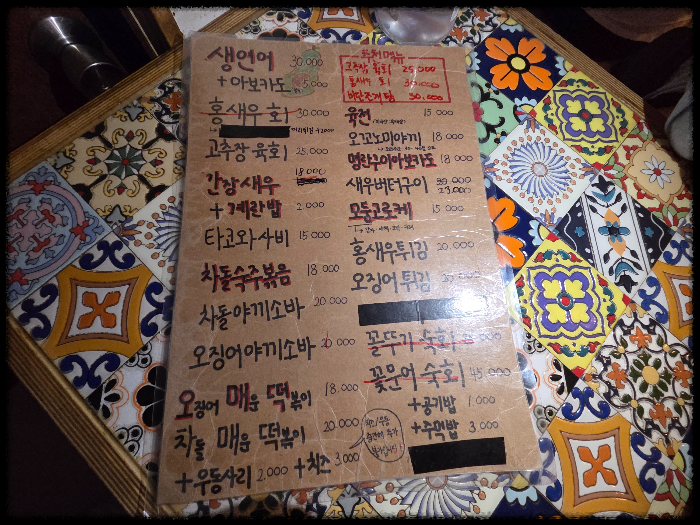 생연어 30.000
+아보카도 5.000
홍새우 회 30.000
머리튀김 +2000
고추장 육회 25.000
간장새우 18.000
+계란밥 2.000
타코와사비 15.000
차돌숙주볶음 18.000
차돌야끼소바 20.000
오징어야끼소바 20.000
오징어 매운 떡볶이 18.000
차돌 매운 떡볶이 20.000
+우동사리 2.000 +치즈 3.000
추천메뉴
고추장 육회 25.000
홍새우 회 30.000
백단조개탕 30.000
육전 15.000
오꼬노미야끼 18.000
명란구이아보카도 18.000
새우버터구이 23.000
모듬고로케 15.000
홍새우튀김 20.000
오징어튀김
꼴뚜기 숙회
꽃문어 숙회 45.000
+공기밥 1.000
+주먹밥 3.000